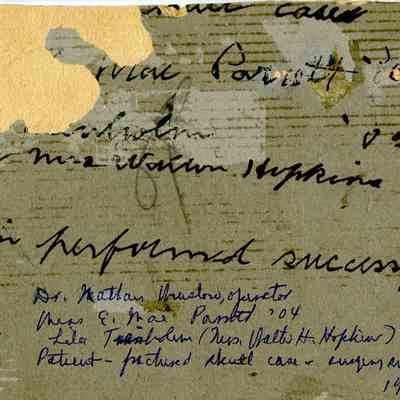 cases
Mae Parrott '0
holm '0
Mrs Walter Hopkins
performed success
Dr. Nathan Winslow, operator
Miss E. Mae Parrott '04
Lela (Mrs. Walter H. Hopkins)
Patient - fractured skull case - surgery
19